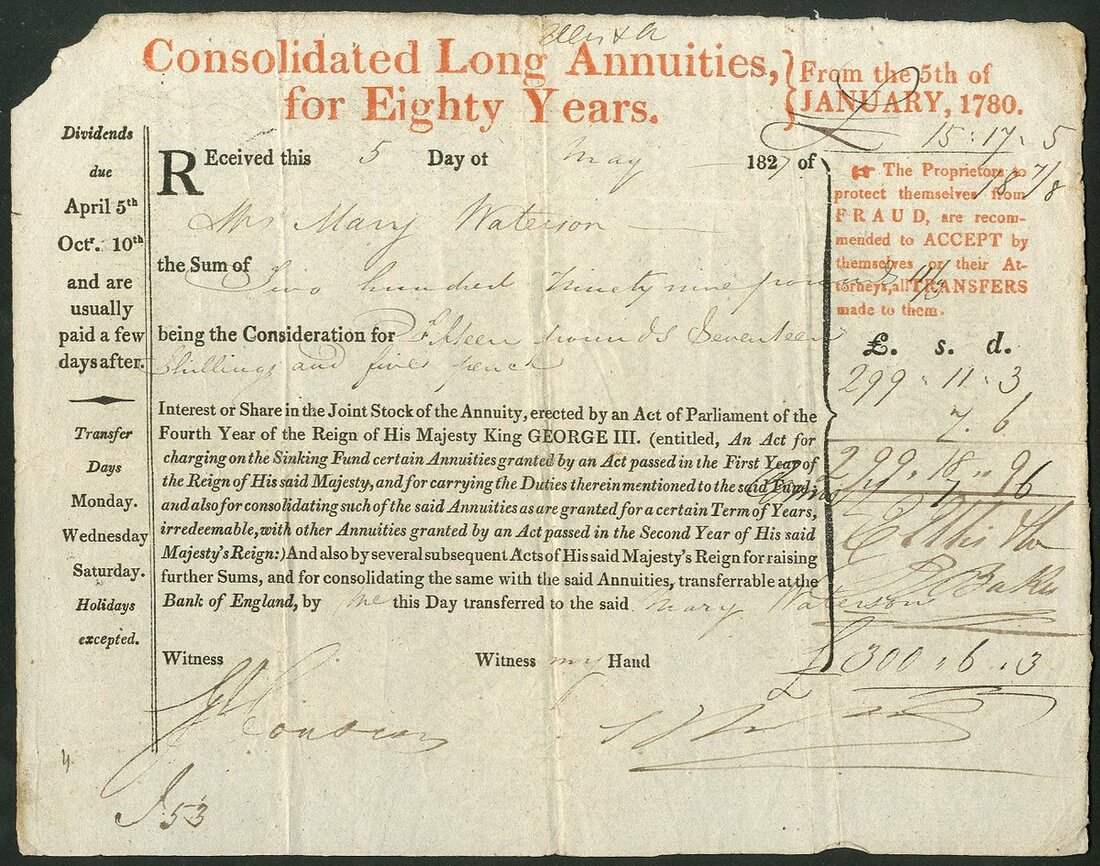 Consolidated Long Annuities,
for Eighty Years.
From the 5th of
JANUARY, 1780.
15 : 17 : 5
18 7/8
☞ The Proprietors to
protect themselves from
FRAUD, are recom-
mended to ACCEPT by
themselves or their At-
torneys, all TRANSFERS
made to them.
£. s. d.
299 " 11 " 3
7. 6
299 " 18 " 9
7 " 6
£ 300 " 6 " 3
Dividends
due
April 5th
Octr. 10th
and are
usually
paid a few
days after.
Transfer
Days
Monday.
Wednesday
Saturday.
Holidays
excepted.
REceived this 5 Day of May 1827 of
Mrs Mary Waterson
the Sum of
Two hundred Ninety nine pounds 11/3
being the Consideration for Fifteen pounds Seventeen
Shillings and five pence
Interest or Share in the Joint Stock of the Annuity, erected by an Act of Parliament of the
Fourth Year of the Reign of His Majesty King GEORGE III. (entitled, An Act for
charging on the Sinking Fund certain Annuities granted by an Act passed in the First Year of
the Reign of His said Majesty, and for carrying the Duties therein mentioned to the said Fund;
and also for consolidating such of the said Annuities as are granted for a certain Term of Years,
irredeemable, with other Annuities granted by an Act passed in the Second Year of His said
Majesty's Reign:) And also by several subsequent Acts of His said Majesty's Reign for raising
further Sums, and for consolidating the same with the said Annuities, transferrable at the
Bank of England, by me this Day transferred to the said Mary Waterson
Witness Witness my Hand
53